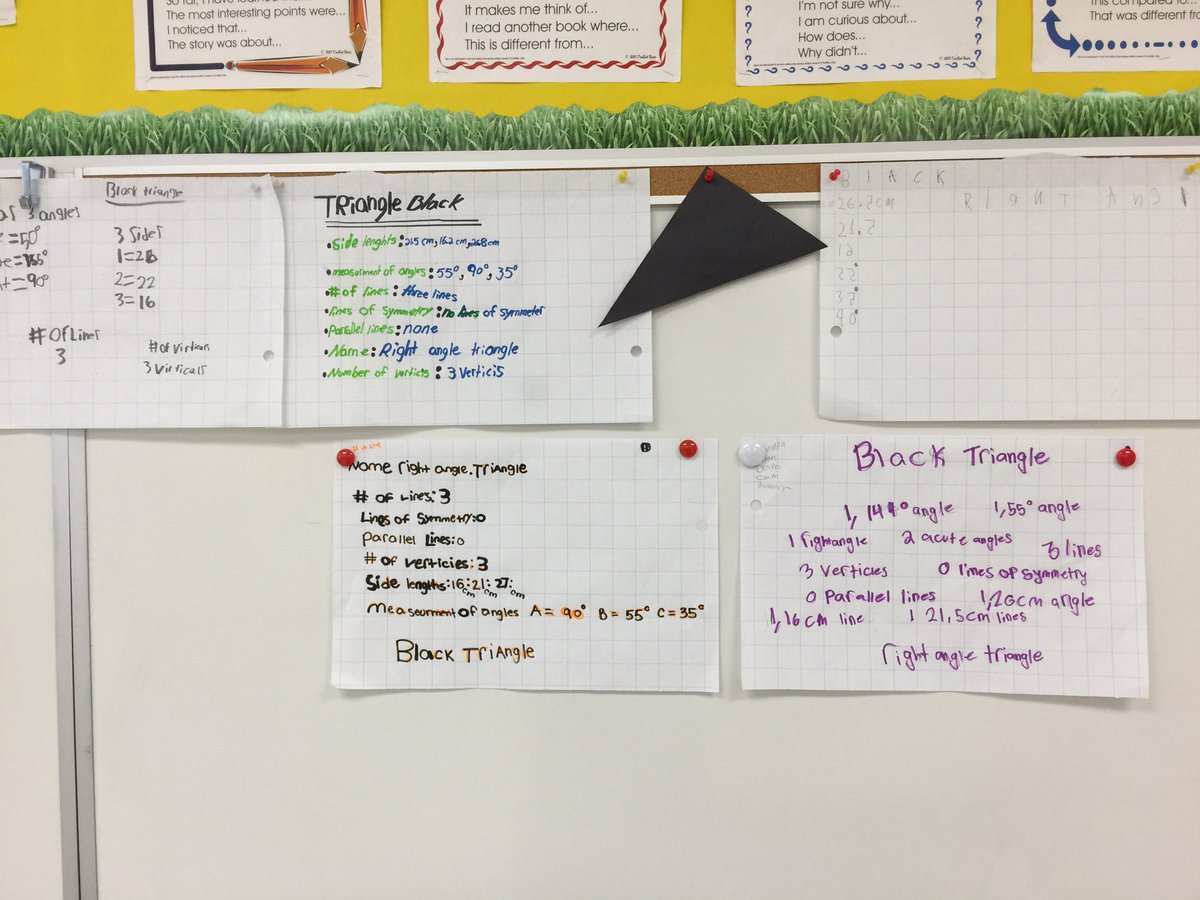 The most interesting points were...
I noticed that...
The story was about...
It makes me think of...
I read another book where...
This is different from...
I'm not sure why...
I am curious about...
How does...
Why didn't...
That was different
Black triangle
3 angles
=50°
=90°
3 sides
1=26
2=22
3=16
# of Lines
3
# of
3
TRiangle Black
• Side lenghts: 26.5 cm, 16.2 cm, 26.8 cm
• measurment of angles: 55°, 90°, 35°
• # of lines: three lines
• lines of symmetry: no lines of symmeter
• Parallel lines: none
• Name: Right angle triangle
• Number of verticts: 3 Verticis
BLACK
26.2cm RIGHT ANGL
21.2
12
22°
32°
90°
Name right angle.Triangle
# of Lines: 3
Lines of Symmetry:0
Parallel Lines:0
# of verticies: 3
Side lengths:16cm:21cm:27cm
measurment of angles A = 90° B = 55° C = 35°
Black TriAngle
Black Triangle
1, 144° angle 1, 55° angle
1 rightangle 2 acute angles 3 lines
3 Verticies 0 lines of symmetry
0 Parallel lines 1, 26cm angle
1, 16 cm line 1 21,5cm lines
right angle triangle